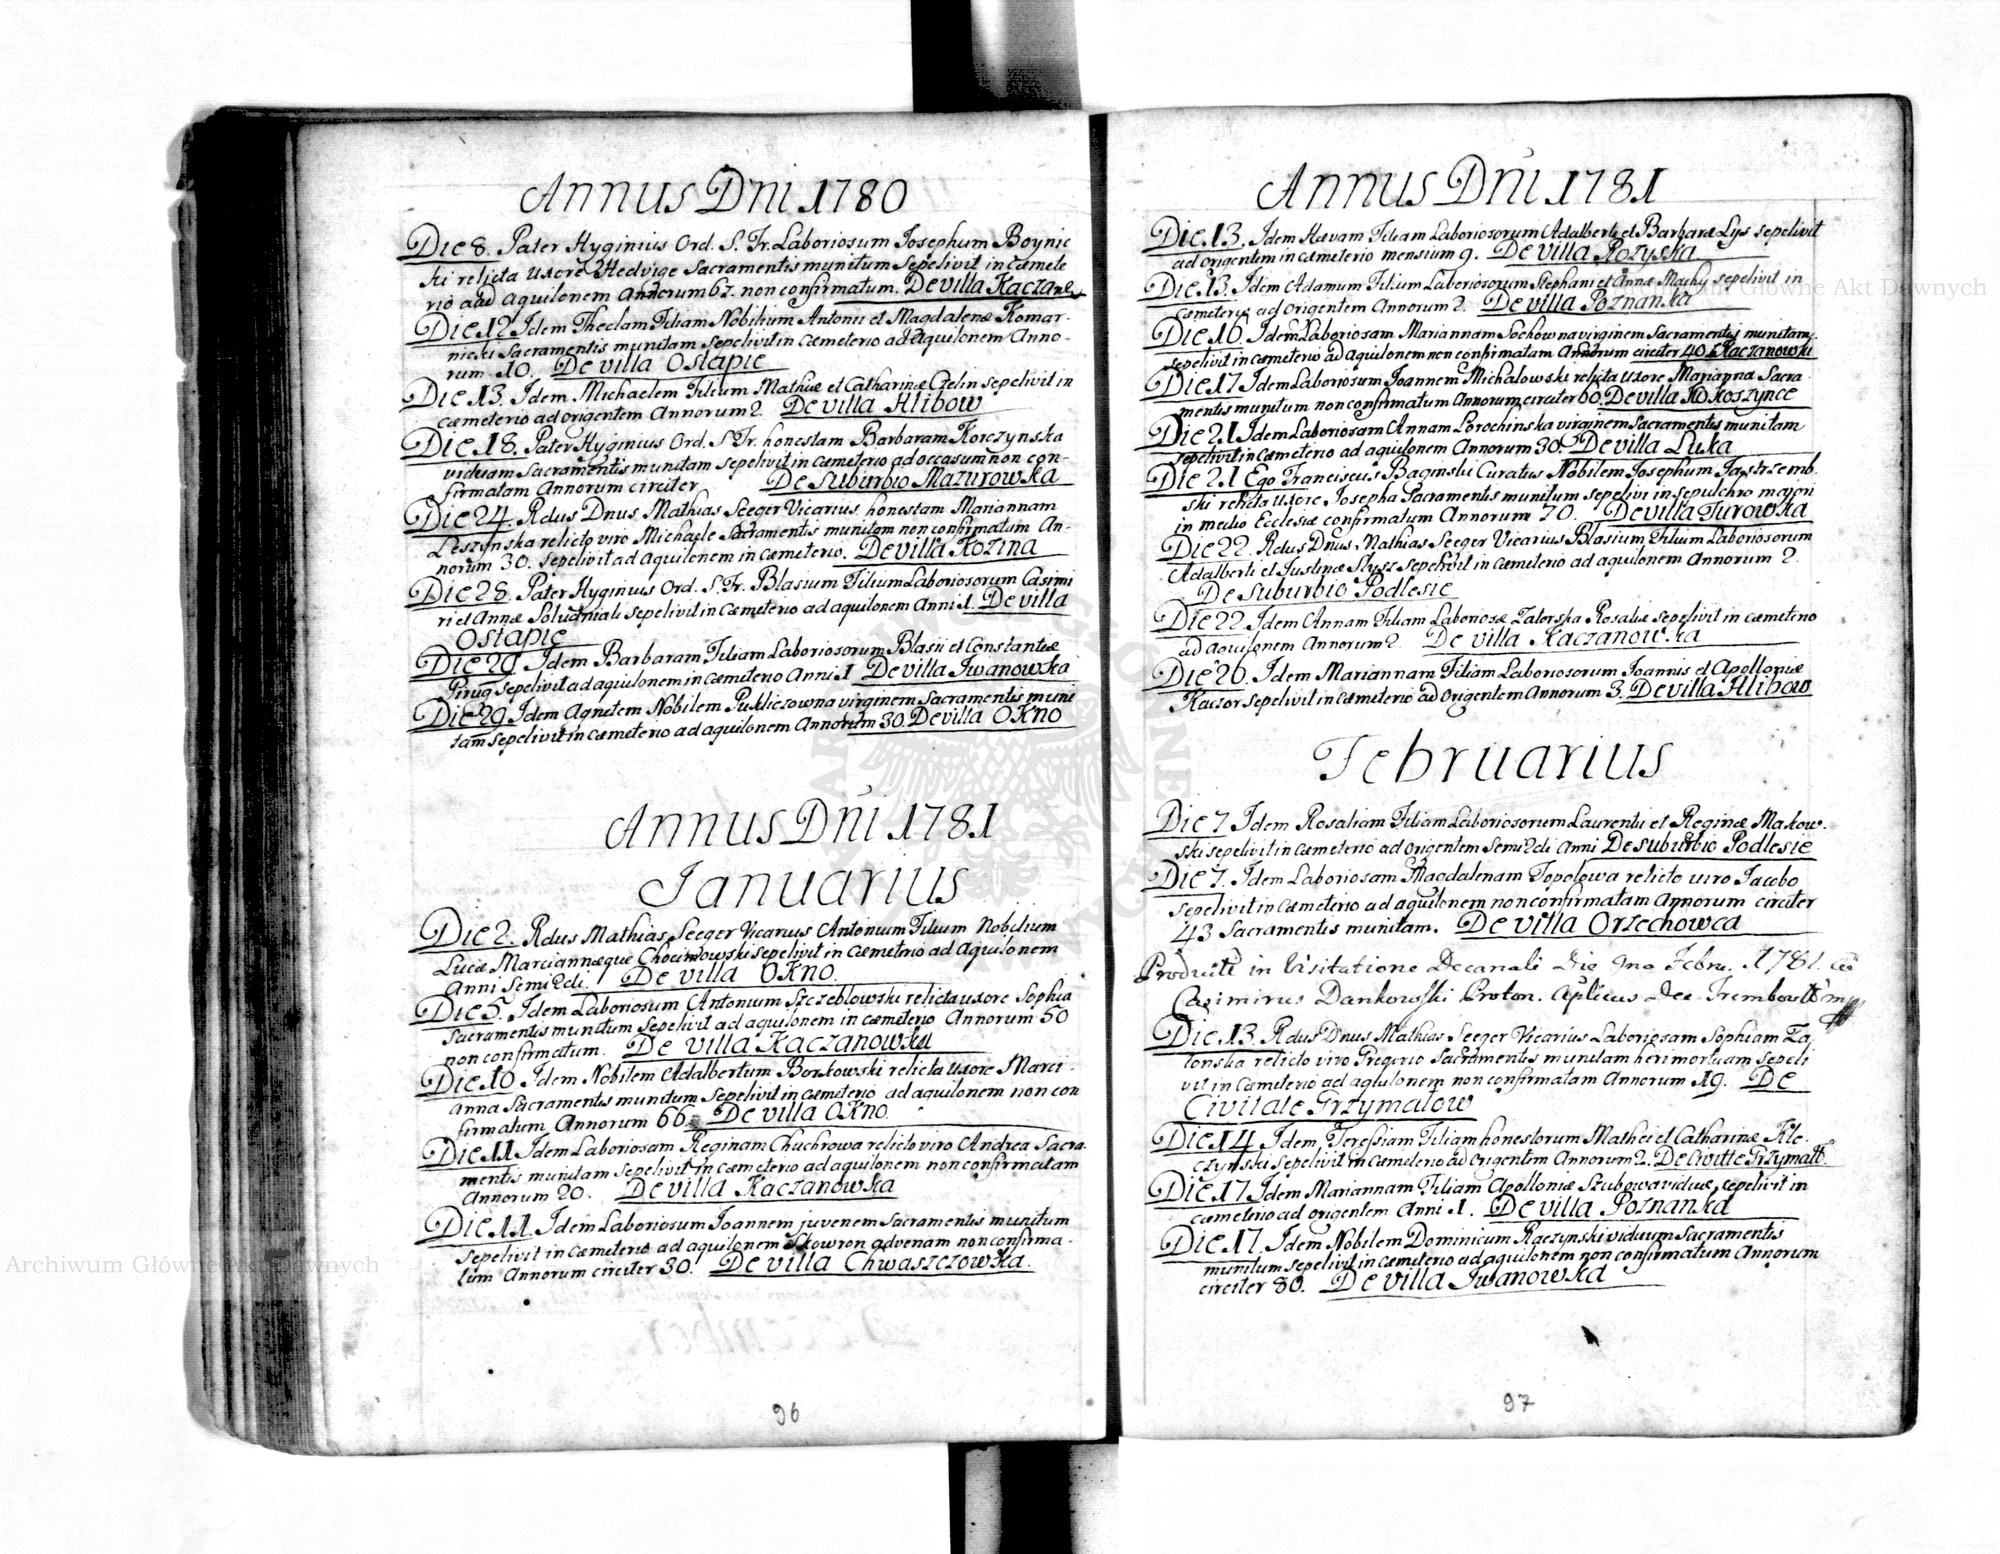 Annus Dni 1780
Die 8. Pater Hyginius Ord. S. Fr. Laboriosum Josephum Boynic
ki relicta uxore Hedvige Sacramentis munitum sepelivit in cæmete
rio ad Aquilonem Annorum 67. non confirmatum. De villa Kaczane
Die 12 Idem Theclam Filiam Nobilium Antonii et Magdalenæ Komar-
nicki Sacramentis munitam sepelivit in cæmeterio ad Aquilonem Anno-
rum 10. De villa Ostapie
Die 13. Idem Michaelem Filium Mathiæ et Catharinæ Czelin sepelivit in
cæmeterio ad origentem Annorum 2. De villa Hlibow
Die 18. Pater Hyginius Ord. S. Fr. honestam Barbaram Korczynska
viduam Sacramentis munitam sepelivit in cæmeterio ad occasum non con-
firmatam Annorum circiter De Suburbio Mazurowka
Die 24. Rdus Dnus Mathias Seeger Vicarius honestam Mariannam
Leszynska relicto viro Michaele Sacramentis munitam non confirmatam An-
norum 30. sepelivit ad Aquilonem in cæmeterio. De villa Kozina
Die 28. Pater Hyginius Ord. S. Fr. Blasium Filium Laboriosorum Casimi
ri et Annæ sepelivit in cæmeterio ad aquilonem Anni 1. De villa
Ostapie
Die 29. Idem Barbaram Filiam Laboriosorum Blasii et Constantiæ
Pirug sepelivit ad aquilonem in cæmeterio Anni 1 De villa Iwanowka
Die 29. Idem Agnetem Nobilem Publiczowna virginem Sacramentis muni
tam sepelivit in cæmeterio ad aquilonem Annorum 30. De villa OKno
Annus Dni 1781
Januarius
Die 2. Rdus Mathias Seeger Vicarius Antonium Filium Nobilium
Lucæ Mariannæque Chocimowski sepelivit in Cæmeterio ad Aquilonem
Anni Semi2di. De villa OKno.
Die 5. Idem Laboriosum Antonium Szczeblowski relicta uxore Sophia
Sacramentis munitum sepelivit ad aquilonem in cæmeterio Annorum 50
non confirmatum. De villa Kaczanowka
Die 10. Idem Nobilem Adalbertum Borkowski relicta uxore Marci-
anna Sacramentis munitum sepelivit in cæmeterio ad aquilonem non con
firmatum Annorum 66. De villa OKno.
Die 11 Idem Laboriosam Reginam Chuchrowa relicto viro Andrea Sacra-
mentis munitam sepelivit in cæmeterio ad aquilonem non confirmatam
Annorum 20. De villa Kaczanowka
Die 11. Idem Laboriosum Joannem juvenem Sacramentis munitum
sepelivit in cæmeterio ad aquilonem Skowron advenam non confirma-
tum Annorum circiter 30. De villa Chwaszczowka.
96
Annus Dni 1781
Die 13. Idem Hævam Filiam Laboriosorum Adalberti et Barbaræ Lys sepelivit
ad origentem in cæmeterio mensium 9. De villa Rozyska
Die 13. Idem Adamum Filium Laboriosorum Stephani et Annæ Machy sepelivit in
cæmeterio ad Origentem Annorum 2. De villa Poznanka
Die 16. Idem Laboriosam Mariannam Sochowna virginem Sacramentis munitam
sepelivit in cæmeterio ad Aquilonem non confirmatam Annorum circiter 40. Kaczanowki
Die 17 Idem Laboriosum Joannem Michalowski relicta uxore Marianna Sacra-
mentis munitum non confirmatum Annorum circiter 60. De villa Kokoszynce
Die 21 Idem Laboriosam Annam Porochinska virginem Sacramentis munitam
sepelivit in cæmeterio ad aquilonem Annorum 30. De villa Luka
Die 21 Ego Franciscus Baginski Curatus Nobilem Josephum Jastrzemb-
ski relicta uxore Josepha Sacramentis munitum sepelivi in sepulchro majori
in medio Ecclesiæ confirmatum Annorum 70. De villa Turowka
Die 22. Rdus Dnus Mathias Seeger Vicarius Blasium Filium Laboriosorum
Adalberti et Justinæ Slysz sepelivit in cæmeterio ad aquilonem Annorum 2.
De Suburbio Podlesie
Die 22. Idem Annam Filiam Laboriosæ Zatorska Rosaliæ sepelivit in cæmeterio
ad aquilonem Annorum 2. De villa Kaczanowka
Die 26. Idem Mariannam Filiam Laboriosorum Joannis et Apolloniæ
Kaczor sepelivit in cæmeterio ad Origentem Annorum 3. De villa Hlibow
Februarius
Die 7 Idem Rosaliam Filiam Laboriosorum Laurentii et Reginæ Makow-
ski sepelivit in cæmeterio ad origentem Semi2di Anni De suburbio Podlesie
Die 7. Idem Laboriosam Magdalenam Topolowa relicto viro Jacobo
sepelivit in cæmeterio ad aquilonem non confirmatam Annorum circiter
43 Sacramentis munitam. De villa Orzechowca
in Visitatione Decanali Die Febru. 1781.
Casimirus Dankowski Proton. Aplicus Dec. Trembowl
Die 13. Rdus Dnus Mathias Seeger Vicarius Laboriosam Sophiam Za-
lonska relicto viro Grigerio Sacramentis munitam heri mortuam sepeli
vit in Cæmeterio ad aquilonem non confirmatam Annorum 19. De
Civitate Grzymalow
Die 14 Idem Teressiam Filiam honestorum Mathei et Catharinæ Kle-
czynski sepelivit in cæmeterio ad origentem Annorum 2. De Civitte Grzymall.
Die 17 Idem Mariannam Filiam Apolloniæ Szubowa viduæ, sepelivit in
cæmeterio ad origentem Anni 1. De villa Poznanka
Die 17. Idem Nobilem Dominicum Raczynski viduum Sacramentis
munitum sepelivit in cæmeterio ad aquilonem non confirmatum Annorum
circiter 80. De villa Iwanowka
97
Archiwum Główne Akt Dawnych